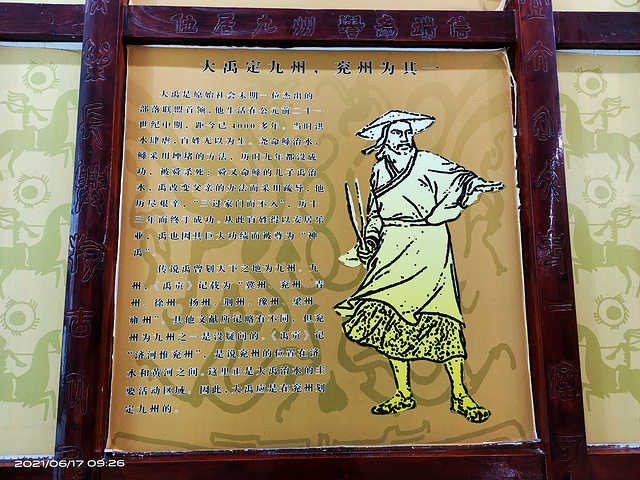 大禹定九州，兖州为其一
大禹是原始社会末期一位杰出的
部落联盟首领，他生活在公元前二十一
世纪中期，距今已4000多年。当时洪
水肆虐，百姓无以为生。尧命鲧治水，
鲧采用堙堵的方法，历时九年都没成
功，被舜杀死；舜又命鲧的儿子禹治
水，禹改变父亲的办法而采用疏导，他
历尽艰辛，“三过家门而不入”，历十
三年而终于成功。从此百姓得以安居乐
业，禹也因其巨大功绩而被尊为“神
禹”。
传说禹曾划天下之地为九州。九
州，《禹贡》记载为“冀州、兖州、青
州、徐州、扬州、荆州、豫州、梁州、
雍州”。其他文献所记略有不同，但兖
州为九州之一是没疑问的。《禹贡》记
“济河惟兖州”，是说兖州的位置在济
水和黄河之间，这里正是大禹治水的主
要活动区域。因此，大禹应是在兖州划
定九州的。
2021/06/17 09:26